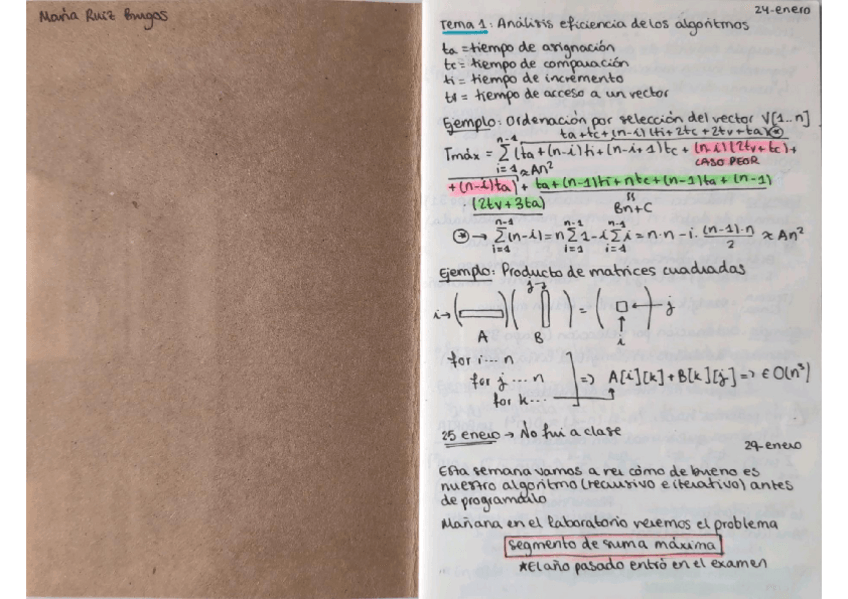 Maria Ruiz Burgos
24-enero
Tema 1: Análisis eficiencia de los algoritmos
ta = tiempo de asignación
tc = tiempo de comparación
ti = tiempo de incremento
tv = tiempo de acceso a un vector
Ejemplo: Ordenación por selección del vector V[1..n]
ta+tc+(n-i)(ti+2tc+2tv+ta)⊛
Tmáx = n-1 Σ i=1 (ta+(n-i)ti+(n-i+1)tc+(n-i)(2tv+tc)+
≈An² CASO PEOR
+(n-i)ta) + ta+(n-1)ti+ntc+(n-1)ta+(n-1)
·(2tv+3ta) Bn+C
⊛→ n-1 Σ i=1 (n-i)=n n-1 Σ i=1 1-i n-1 Σ i=1 i = n·n-i·(n-1)·n/2 ≈ An²
Ejemplo: Producto de matrices cuadradas
j→
i→ ( ) ( ) = ( ) j
A B i
for i... n
for j ... n => A[i][k]+B[k][j] => ∈ O(n³)
for k...
25 enero → No fui a clase
29-enero
Esta semana vamos a ver cómo de bueno es
nuestro algoritmo (recursivo e iterativo) antes
de programarlo
Mañana en el laboratorio veremos el problema
segmento de suma máxima
*El año pasado entró en el examen